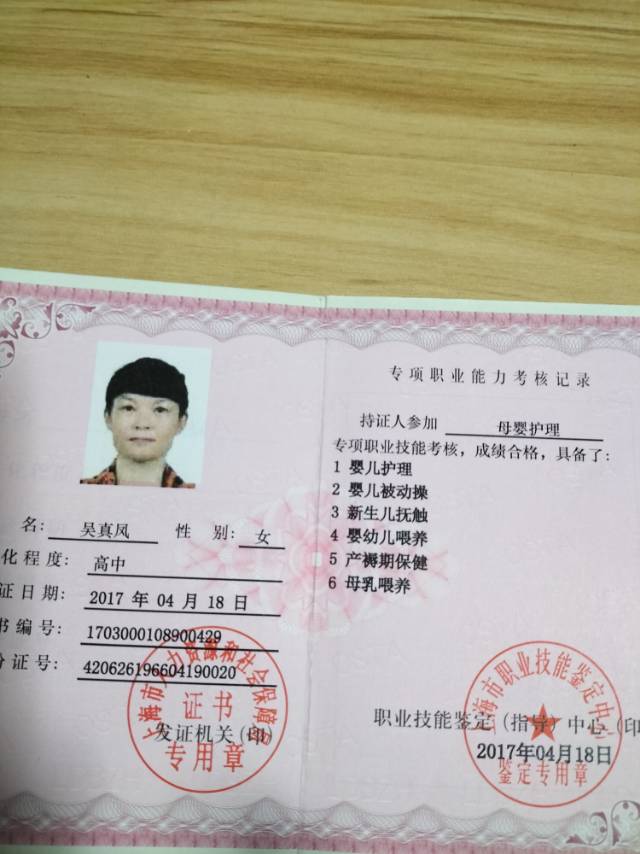 名：吴真凤 性 别：女
化程度：高中
证日期：2017 年 04 月 18 日
书编号：1703000108900429
份证号：420626196604190020
发证机关(印)
上海市人力资源和社会保障局
证书
专用章
专项职业能力考核记录
持证人参加 母婴护理
专项职业技能考核，成绩合格，具备了：
1 婴儿护理
2 婴儿被动操
3 新生儿抚触
4 婴幼儿喂养
5 产褥期保健
6 母乳喂养
职业技能鉴定(指导)中心(印
2017年04月18日
上海市职业技能鉴定中心
鉴定专用章